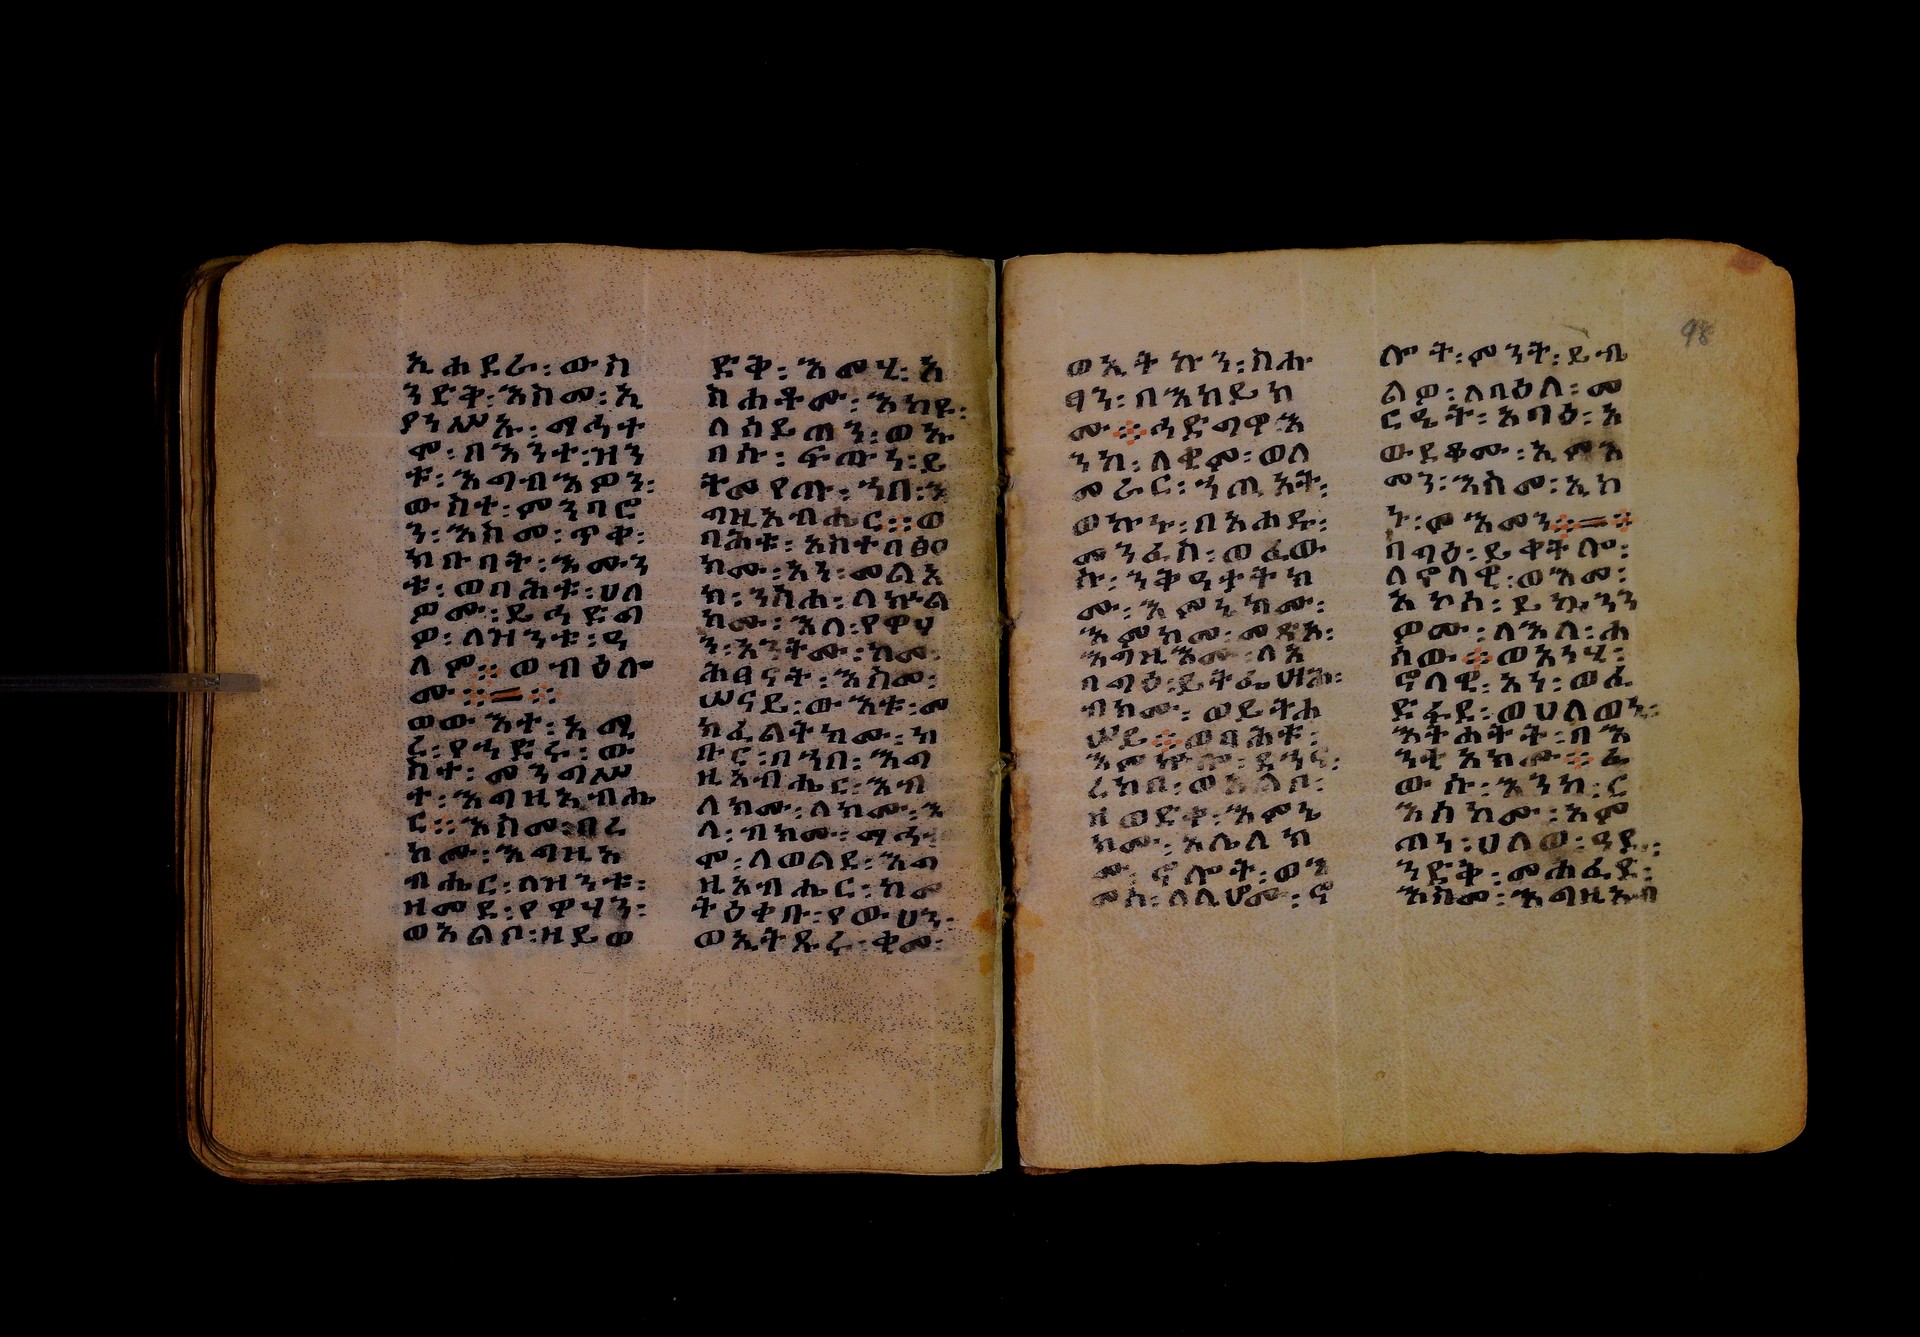 ኢሐደራ፡ውስ
ንድት፡እስመ፡ኢ
ት፡ማኅተ
ሞ፡በእንተ፡ዝን
ቱ፡እግብእዎን፡
ውስተ፡ምንባሮ
ን፡እስመ፡ጥቀ፡
ክቡባት፡እሙን
ቱ፡ወባሕቱ፡ሀለ
ዎሙ፡ይኅድግ
ዎ፡ለዝንቱ፡ዓ
ለም፡፡ወብዕለ
ሙ፡፡
ወውእቱ፡አሚ
ረ፡የኀድሩ፡ው
ስተ፡
ተ፡እግዚአብሔ
ር፡፡እስመ፡
ክሙ፡እግዚአ
ብሔር፡በዝንቱ፡
ዘመደ፡የዋሃን፡
ወአልቦ፡ዘይወ
ድቅ፡እመሂ፡አ
ስሐቶሙ፡እከይ፡
ለሰይጣን፡ወኑ
ባሱ፡ፍጡነ፡ይ
ትመየጡ፡ኀበ፡እ
ግዚአብሔር፡፡ወ
ባሕቱ፡አስተበፅዕ
ክሙ፡አነ፡መልአ
ክ፡ንስሐ፡ለኵል
ክሙ፡እለ፡የዋሃ
ን፡አንትሙ፡ከመ፡
ሕፃናት፡እስመ፡
ሠናይ፡ውእቱ፡መ
ክፈልትክሙ፡ክ
ቡር፡በኀበ፡እግ
ዚአብሔር፡እብ
ለክሙ፡ለክሙ፡እ
ለ፡ብክሙ፡ማኅተ
ሞ፡ለወልደ፡እግ
ዚአብሔር፡ከመ
ትዕቀቡ፡የውሀን፡
ወኢትጹሩ፡ቂመ፡
ወኢትኩን፡ስሑ
ፃን፡በእከይክ
ሙ፡፡ኅድግዋ፡እ
ንከ፡ለቂም፡ወለ
መራር፡ኀጢአት፡
ወኩኑ፡በአሐዱ፡
መንፈስ፡ወፈው
ሱ፡ንቅዓተትክ
ሙ፡እምኔክሙ፡
እምከመ፡መጽአ፡
እግዚእሙ፡ለአ
ባግዕ፡ይትፌሣሕ፡
ብክሙ፡ወይትሐ
ሠይ፡፡ወባሕቱ፡
ረከበ፡ወአልቦ፡
ዘወድቀ፡እምኔ
ክሙ፡አሌለክ
ሙ፡ኖሎት፡ወእ
መሰ፡ለሊሆሙ፡ኖ
ሎት፡ምንት፡ይብ
ልዎ፡ለበዕለ፡መ
ርዔት፡አባዕ፡አ
ውደቆሙ፡ኢምእ
መን፡እስመ፡ኢኮ
ነ፡መእመነ፡፡
በግዕ፡ይቀትሎ፡
ለኖላዊ፡ወእመ፡
አኮሰ፡ይኴንን
ዎሙ፡ለእለ፡ሐ
ሰው፡፡ወአንሂ፡
ኖላዊ፡አነ፡ወፈ
ድፋደ፡ወሀለወኒ፡
እትሐትት፡በእ
ንቲአክሙ፡፡ፈ
ውሱ፡እንከ፡ር
እስክሙ፡አም
ጣነ፡ሀለወ፡ዓዲ፡
ንድቅ፡መሐፈደ፡
እስመ፡እግዚአብ
98